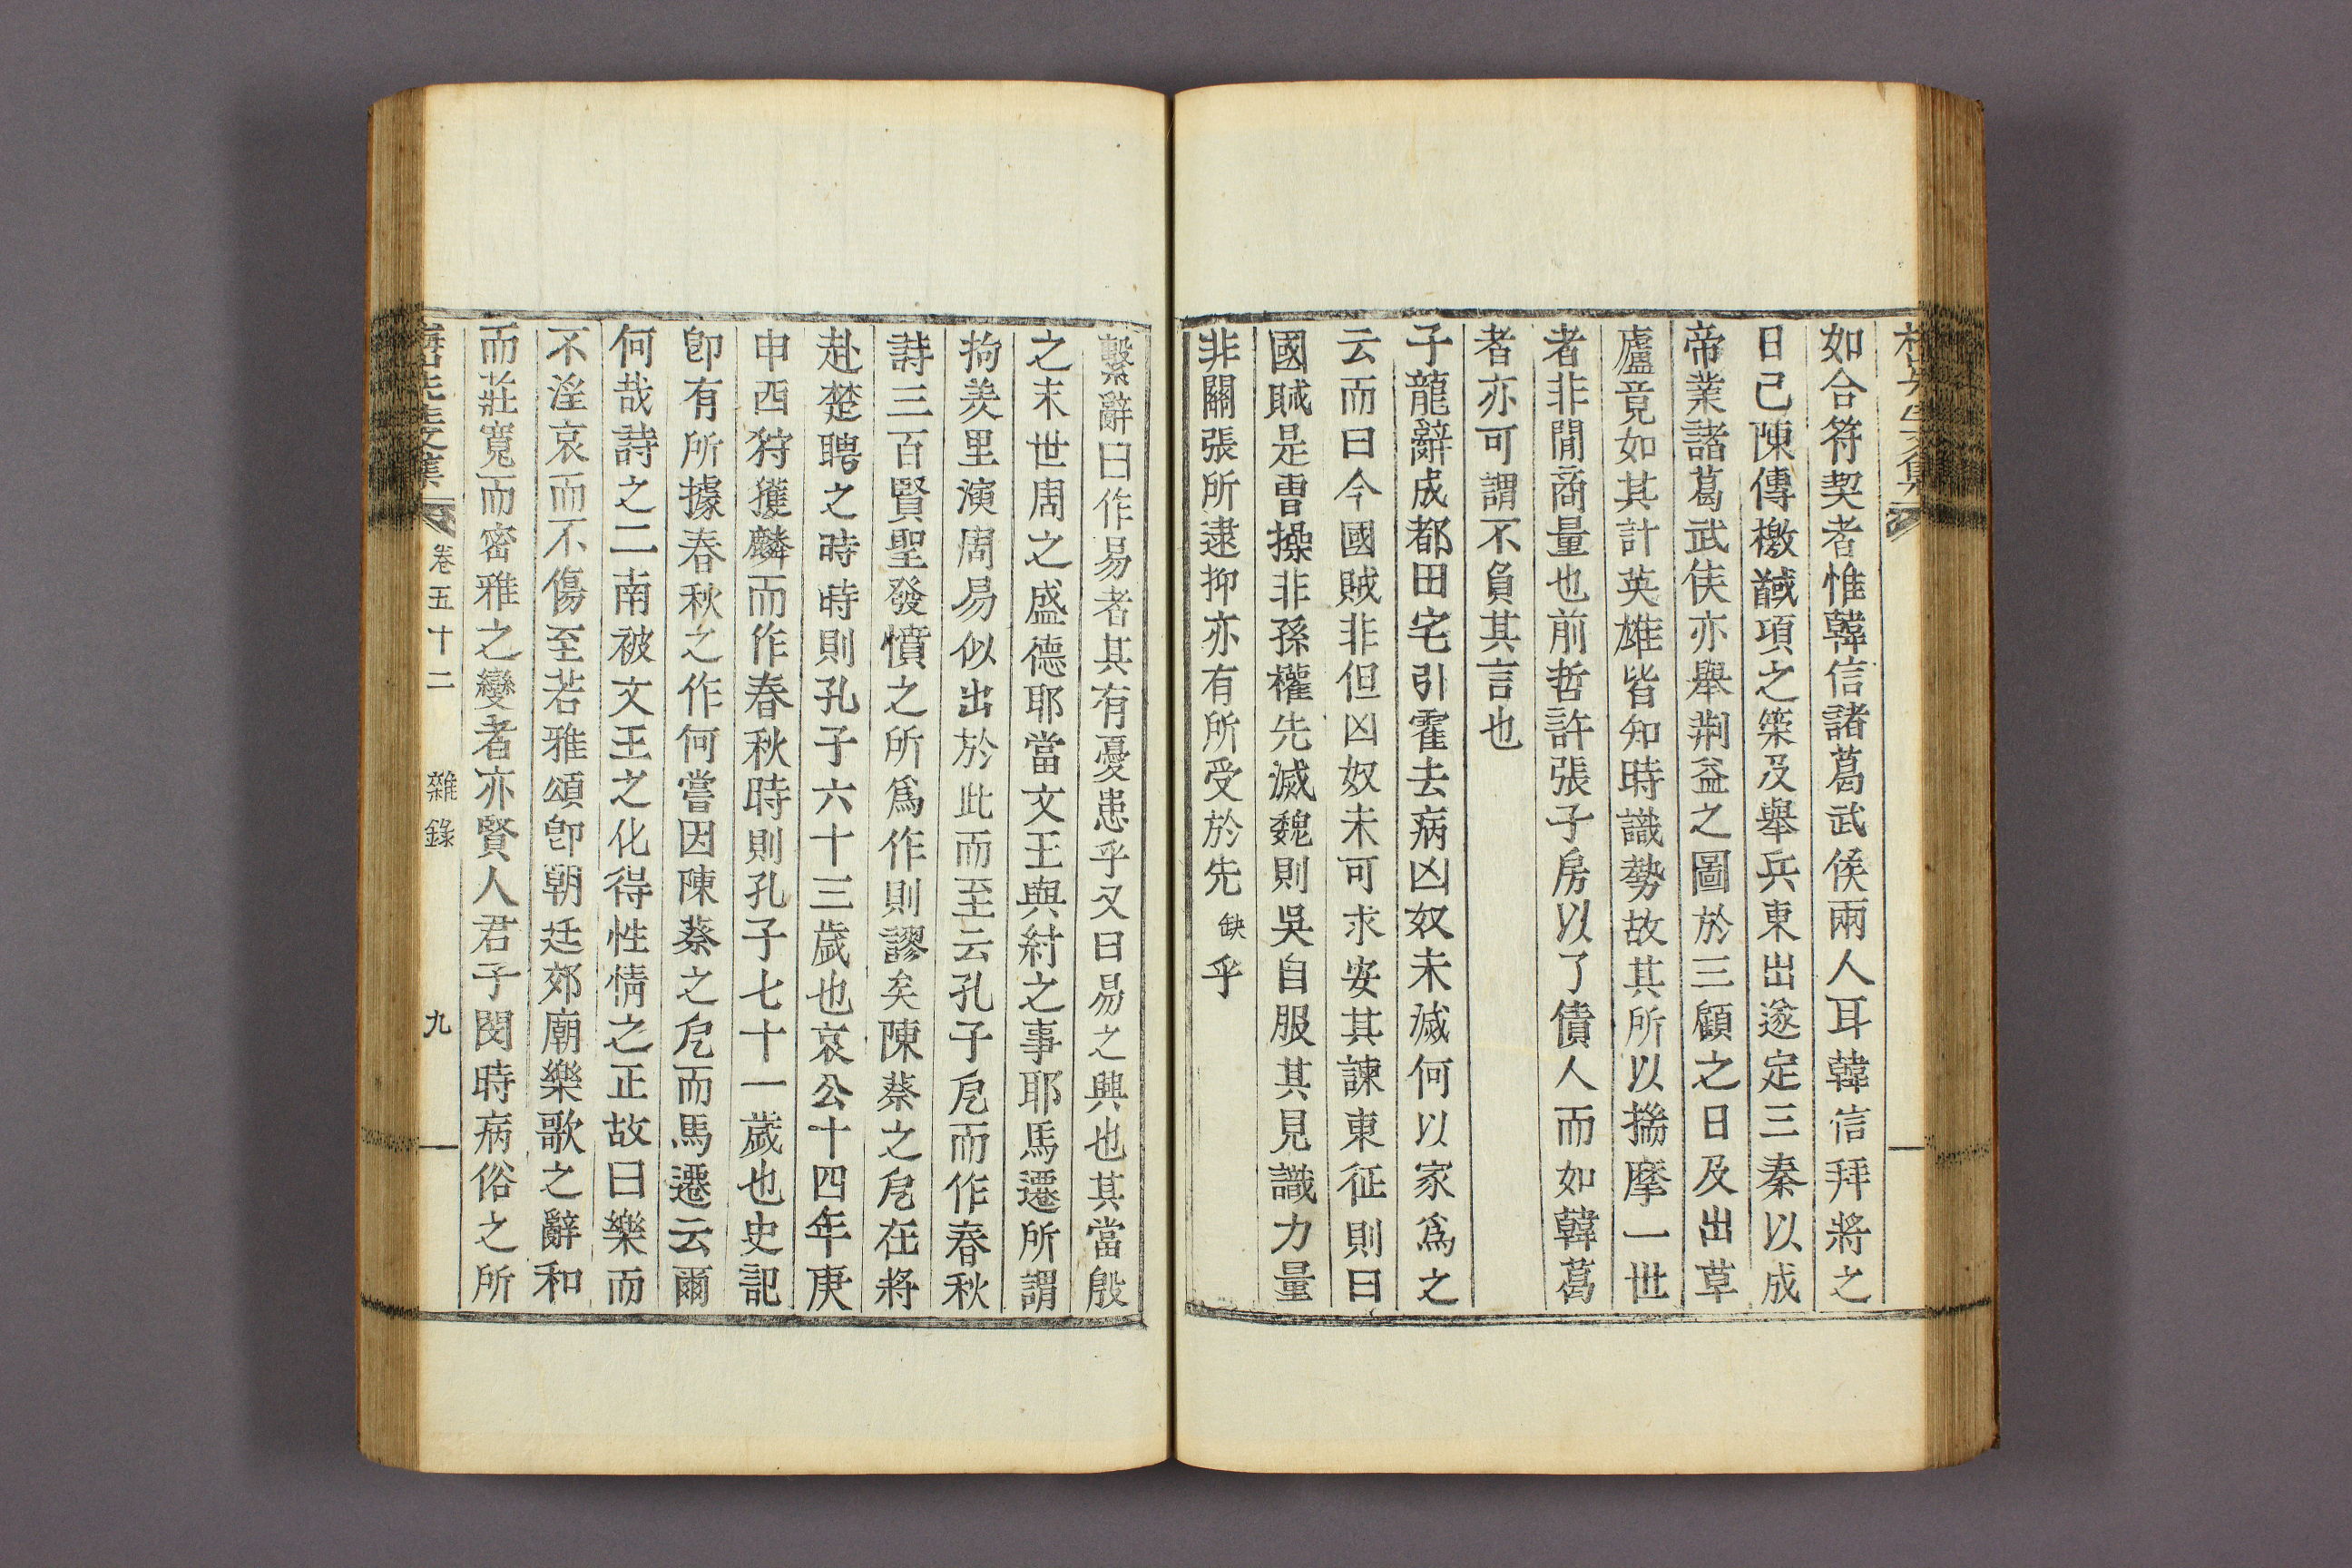 如合符契者惟韓信諸葛武侯兩人耳韓信拜將之
日己陳傳檄馘項之筞及舉兵東出遂定三秦以成
帝業諸葛武侯亦舉荆益之圖於三顧之日及出草
廬竟如其計英雄皆知時識勢故其所以揣摩一世
者非閒商量也前哲許張子房以了債人而如韓葛
者亦可謂不負其言也
子龍辭成都田宅引霍去病凶奴未滅何以家爲之
云而曰今國賊非但凶奴未可求安其諫東征則曰
國賊是曺操非孫權先滅魏則吳自服其見識力量
非關張所逮抑亦有所受於先缺乎
繫辭曰作易者其有憂患乎又曰易之興也其當殷
之末世周之盛德耶當文王與紂之事耶馬遷所謂
拘羑里演周易似出於此而至云孔子戹而作春秋
詩三百賢聖發憤之所爲作則謬矣陳蔡之戹在將
赴楚聘之時時則孔子六十三歲也哀公十四年庚
申西狩獲麟而作春秋時則孔子七十一歲也史記
卽有所據春秋之作何嘗因陳蔡之戹而馬遷云爾
何哉詩之二南被文王之化得性情之正故曰樂而
不淫哀而不傷至若雅頌卽朝廷郊廟樂歌之辭和
而莊寬而密雅之變者亦賢人君子閔時病俗之所
先生文集 卷五十二 雜錄 九